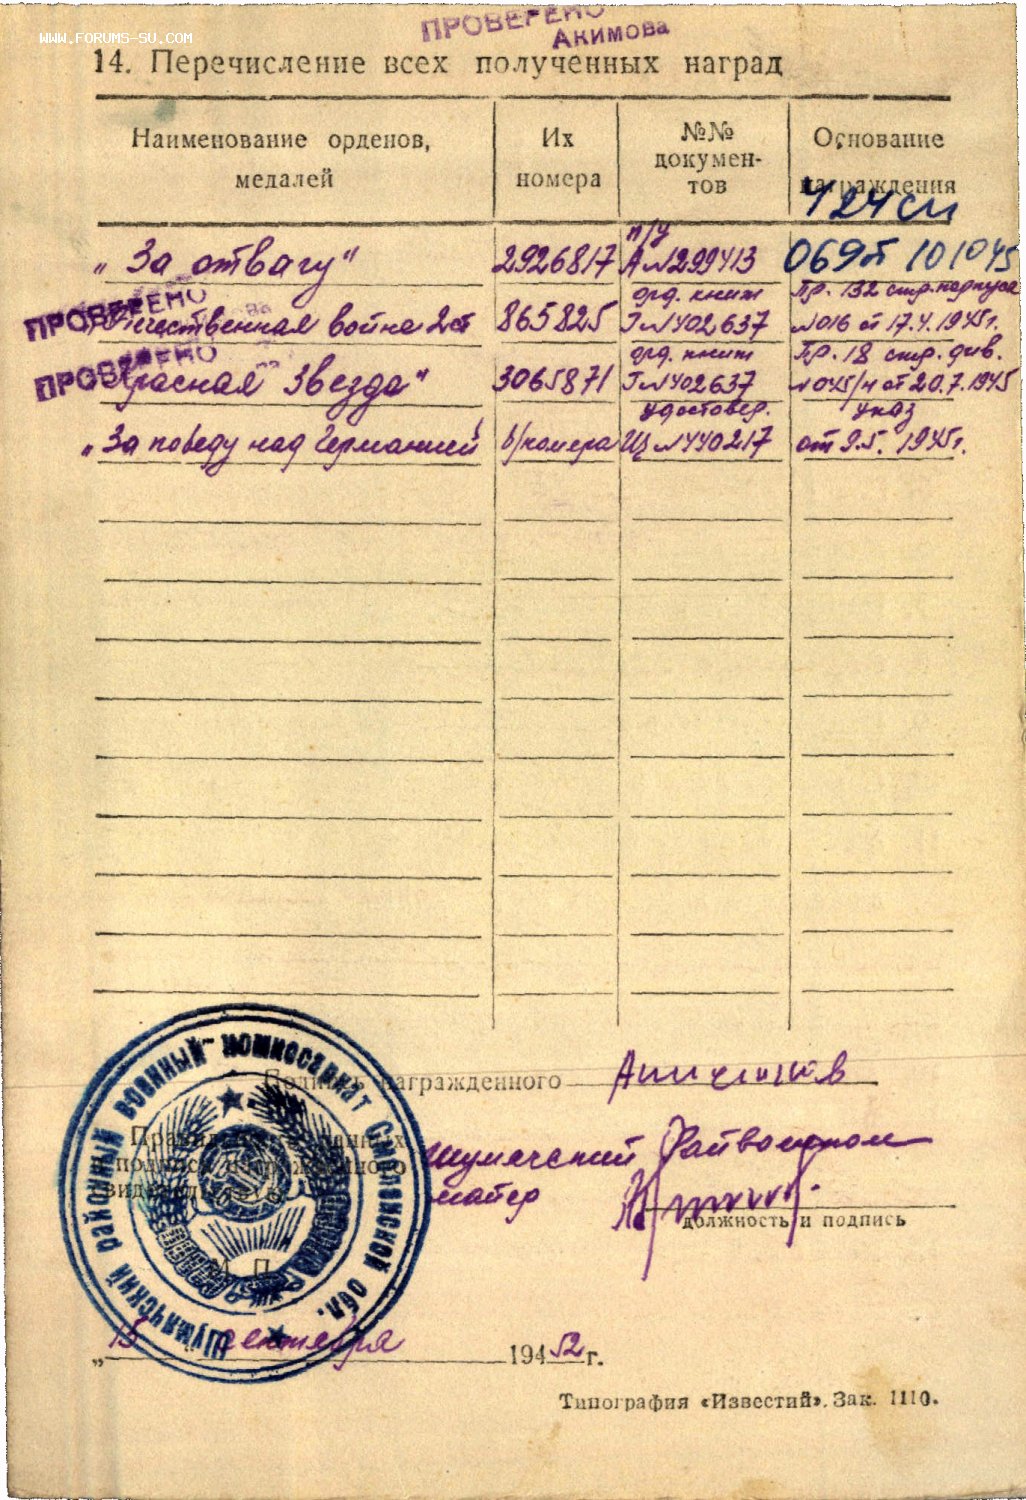 WWW.FORUMS-SU.COM
ПРОВЕРЕНО
Акимова
14. Перечисление всех полученных наград
Наименование орденов, медалей
Их номера
№№ документов
Основание награждения
424 сп
„За отвагу“ 2926817 п/у А№299413 069п 10 10 45
ПРОВЕРЕНО
Отечественная война 2 ст 865825 орд. книж Г№402637 Пр. 132 стр. корпуса №016 от 17.4.1945г.
ПРОВЕРЕНО
Красная Звезда" 3065871 орд. книж Г№402637 Пр. 18 стр. див. №045/н от 20.7.1945
„За победу над Германией" б/номера удостовер. №440217 указ от 9.5. 1945г.
Подпись награжденного
Шумячский Райвоенком
майор
должность и подпись
М. П.
Шумячский районный военный комиссариат Смоленской обл.
„15 сентября 1952 г.
Типография «Известий». Зак. 1110.